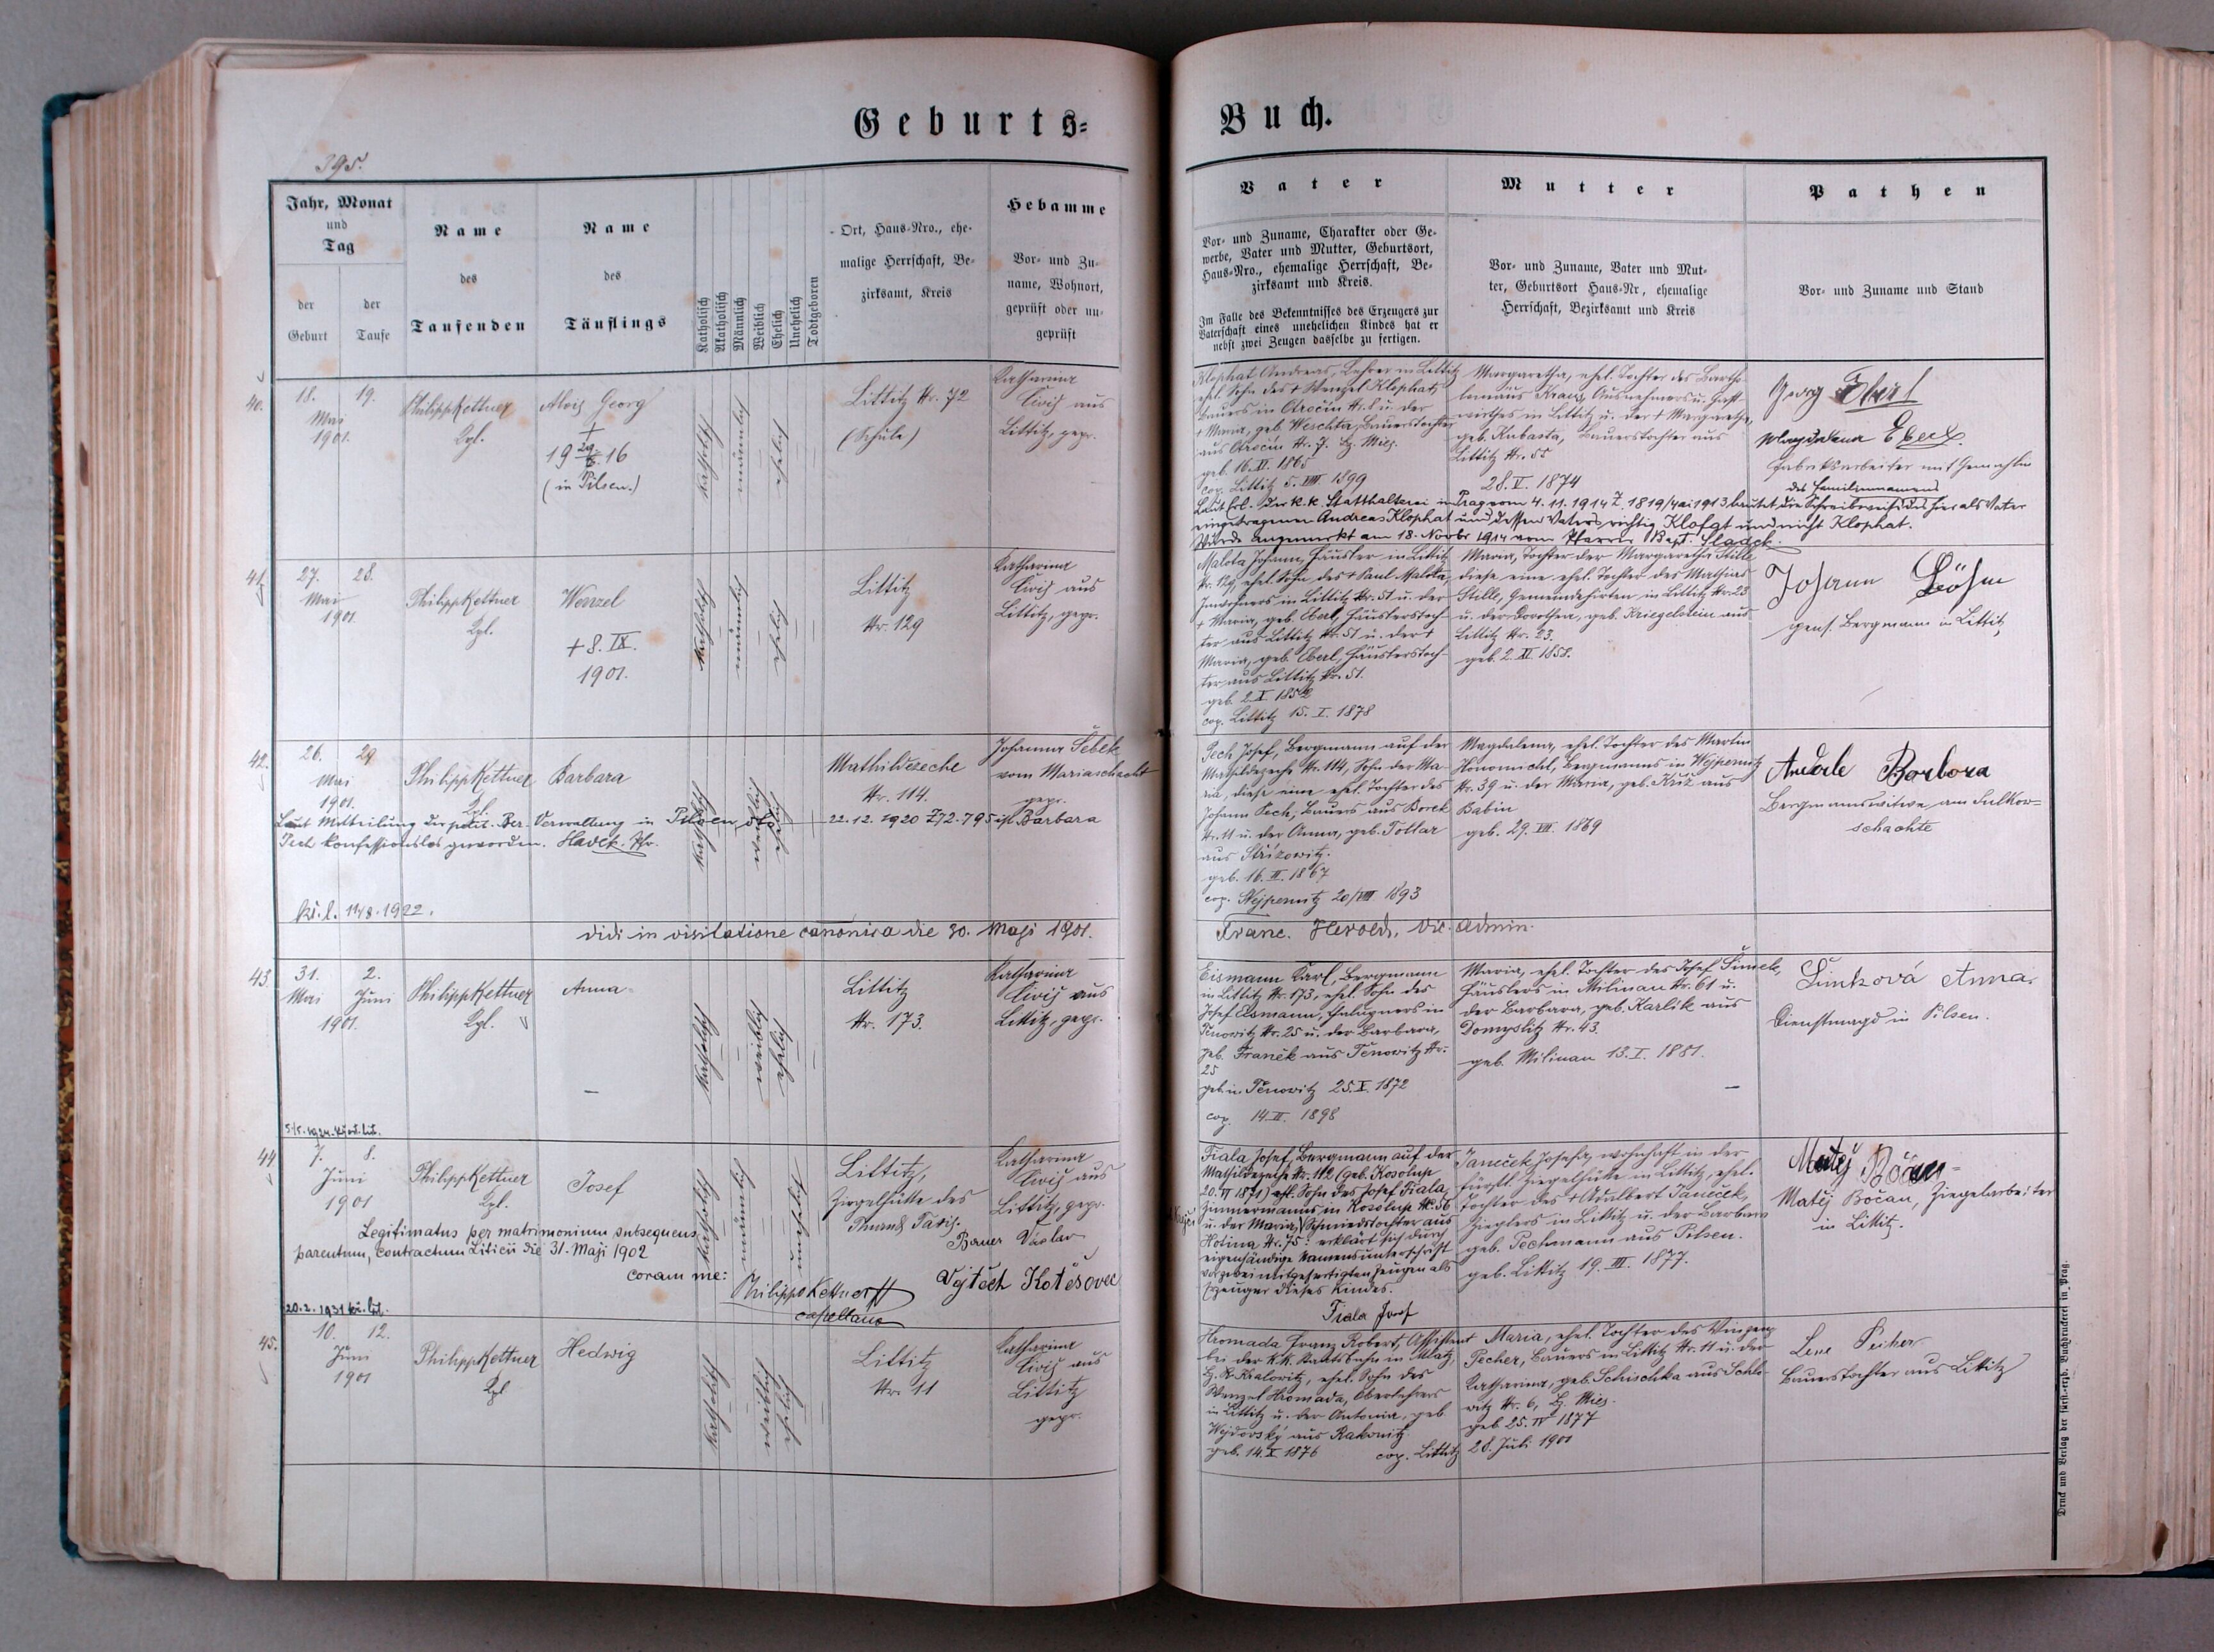 Geburts-
Buch.
395.
Jahr, Monat
und
Tag
der
Geburt
der
Taufe
Name
des
Taufenden
Name
des
Täuflings
Katholisch
Akatholisch
Männlich
Weiblich
Ehelich
Unehelich
Todtgeboren
Ort, Haus-Nro., ehe-
malige Herrschaft, Be-
zirksamt, Kreis
Hebamme
Vor- und Zu-
name, Wohnort,
geprüft oder un-
geprüft
Vater
Vor- und Zuname, Charakter oder Ge-
werbe, Vater und Mutter, Geburtsort,
Haus-Nro., ehemalige Herrschaft, Be-
zirksamt und Kreis.
Im Falle des Bekenntnisses des Erzeugers zur
Vaterschaft eines unehelichen Kindes hat er
nebst zwei Zeugen dasselbe zu fertigen.
Mutter
Vor- und Zuname, Vater und Mut-
ter, Geburtsort Haus-Nr, ehemalige
Herrschaft, Bezirksamt und Kreis
Pathen
Vor- und Zuname und Stand
40.
18. 19.
Mai
1901.
Philipp Kettner
Alois Georg
†
19 29/6. 16
(in Pilsen.)
katholisch
männlich
ehelich
Littitz Nr. 72
(Schule)
Katharina
aus
Littitz, gepr.
Klophat Andreas, Lehrer in Littitz
ehel. Sohn des † Wenzel Klophat,
Bauers in Otročin Nr. 8 u. der
† Maria, geb. Weschta, Bauerstochter
aus Otročin Nr. 7. Bz. Mies.
geb. 16. XI. 1865
cop. Littitz 5. VIII 1899
Margaretha, ehel. Tochter des Bartho-
lomäus Kraus, Ausnehmers u. Gast-
wirthes in Littitz u. der † Margaretha,
geb. Kubasta, Bauerstochter aus
Littitz Nr. 55
28. V. 1874
Georg Eberl
Magdalena Eberl.
Fabriksarbeiter mit Gemahlin
des Familiennamens
Laut Erl. der k. k. Statthalterei in Prag vom 4. 11. 1914 Z. 1819/ 1913 lautet die Schreibweise des hier als Vater
eingetragenen Andreas Klophat und dessen Vaters richtig Klofat und nicht Klophat.
Wurde angemerkt am 18. Novbr 1914 vom Pfarrer Bapt. Sladek.
41.
27. 28.
Mai
1901.
Philipp Kettner
Wenzel
† 8. IX.
1901.
katholisch
männlich
ehelich
Littitz
Nr. 129
Katharina
aus
Littitz, gepr.
Malota Johann, Häusler in Littitz
Nr. 129, ehel. Sohn des † Paul Malota,
Inwohners in Littitz Nr. 51 u. der
† Maria, geb. Eberl, Häuslerstoch-
ter aus Littitz Nr. 51 u. der †
Maria, geb. Eberl, Häuslerstoch-
ter aus Littitz Nr. 51.
cop. Littitz 15. I. 1878
Maria, Tochter der Margaretha Stille,
diese eine ehel. Tochter des Mathias
Stille, Gemeindehirten in Littitz Nr. 23
u. der Dorothea, geb. Kriegelstein aus
Littitz Nr. 23.
geb. 2. XI. 1858.
Johann Böhm
pens. Bergmann in Littitz
42.
26. 29
Mai
1901.
Philipp Kettner
Barbara
katholisch
weiblich
ehelich
Mathildezeche
Nr. 114.
Johanna Šebek
vom Mariaschacht
gepr.
Laut Mitteilung der polit. Bez. Verwaltung in Pilsen, 22. 12. 1920 Z 72.795 ist Barbara
Pech konfessionslos geworden. Havek. Pfr.
11/8. 1922.
Pech Josef, Bergmann auf der
Mathildezeche Nr. 114, Sohn der Ma-
ria, diese eine ehel. Tochter des
Johann Pech, Bauers aus Borek
Nr. 11 u. der Anna, geb. Tollar
aus Střížowitz.
geb. 16. II. 1867
cop. Nejpernitz 20/VIII 1893
Magdalena, ehel. Tochter des Martin
Honomichl, Bergmanns in Wejpernitz
Nr. 39 u. der Maria, geb. Kříž aus
Babin
geb. 29. VII. 1869
Anderle Barbora
Bergmannswitwe am Sulkov-
schachte
Vidi in visitatione canonica die 30. Maji 1901. Franc. Herold, vic. admin.
43.
31. 2.
Mai Juni
1901.
Philipp Kettner
Anna
katholisch
weiblich
ehelich
Littitz
Nr. 173.
Katharina
aus
Littitz, gepr.
Eismann Karl, Bergmann
in Littitz Nr. 173, ehel. Sohn des
Josef Eismann, Chalupners in
Těnowitz Nr. 25 u. der Barbara,
geb. Franěk aus Těnowitz Nr.
25
geb. in Těnowitz 25. X. 1872
cop. 14. II. 1898
Maria, ehel. Tochter des Josef Šimek,
Häuslers in Milinau Nr. 61 u.
der Barbara, geb. Karlik aus
Domyslitz Nr. 43.
geb. Milinau 13. I. 1881.
Šimková Anna.
Dienstmagd in Pilsen.
44.
7. 8.
Juni
1901
Philipp Kettner
Josef
katholisch
männlich
unehelich
Littitz,
Ziegelhütte des
Thurn & Taxis.
Katharina
aus
Littitz, gepr.
Legitimatus per matrimonium subsequens
parentum, contractum Liticii die 31. Maji 1902
coram me:
Philippo Kettner
capellano
Bauer Václav
Vojtěch Kotěšovec
20. 2. 1931
Fiala Josef, Bergmann auf der
Mathildezeche Nr. 112 (geb. Kosolup
20. VI 1871) ehl. Sohn des Josef Fiala,
Zimmermanns in Kosolup Nr. 56
u. der Maria, Schmiedstochter aus
Hotina Nr. 75: erklärt sich durch
eigenhändige Namensunterschrift
vor zwei mitgefertigten Zeugen als
Erzeuger dieses Kindes.
Fiala Josef
Janeček Josefa, wohnhaft in der
fürstl. Ziegelhütte in Littitz, ehel.
Tochter des † Adalbert Janeček,
Zieglers in Littitz u. der Barbara
geb. Pechmann aus Pilsen.
geb. Littitz 19. III. 1877.
Matěj Bočan
Matěj Bočan, Ziegelarbeiter
in Littitz.
45.
10. 12.
Juni
1901
Philipp Kettner
Hedwig
katholisch
weiblich
ehelich
Littitz
Nr. 11
Katharina
aus
Littitz
gepr.
Hromada Franz Robert, Assistent
bei der k.k. Staatsbahn in Mlatz,
Bz. Kralowitz, ehel. Sohn des
Wenzel Hromada, Oberlehrers
in Littitz u. der Antonia, geb.
Wejdovský aus Rakonitz.
geb. 14. X. 1876 cop. Littitz 28. Juli 1901
Maria, ehel. Tochter des Vinzenz
Pecher, Bauers in Littitz Nr. 11 u. der
Katharina, geb. Schischka aus Schlo-
witz Nr. 6, Bz. Mies.
geb. 25. IV 1877
Bauerstochter aus Littitz
Druck und Verlag der fürst.-erzb. Buchdruckerei in Prag.